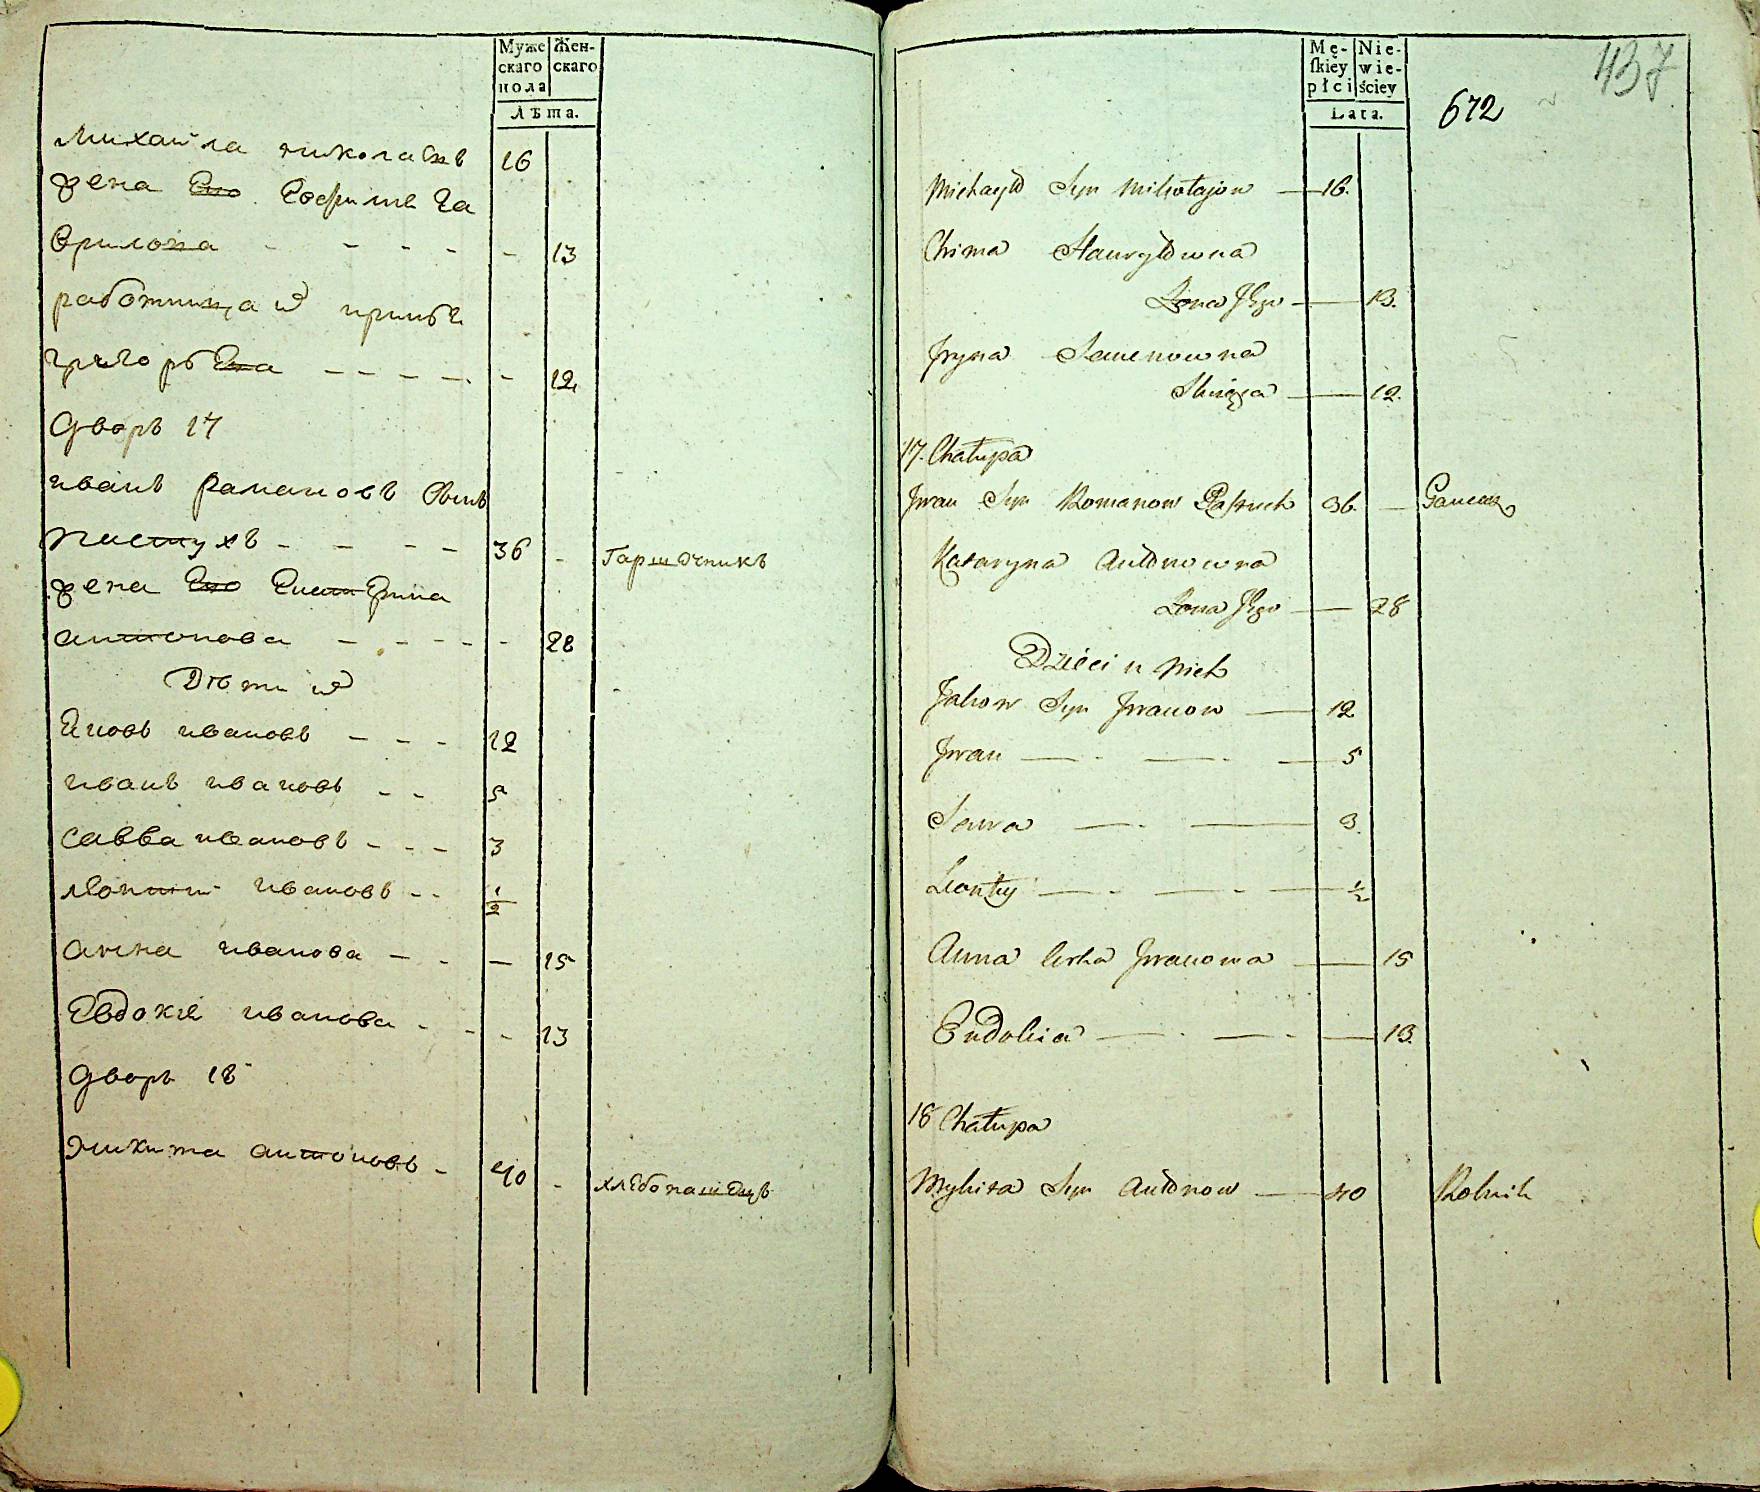 Муже
скаго
пола
Жен-
скаго
Лѣта.
Михайла николаевъ 16
жена Его Евфимѣ Га
врилова - - - - - 13
работница ихъ
григорьева - - - - - 12
Дворъ 17
иванъ рамановъ сынъ
пастухъ - - - - 36 - гаршечникъ
жена Его Екатерина
антонова - - - - - 28
Дѣти ихъ
Яковъ ивановъ - - - 12
иванъ ивановъ - - 5
савва ивановъ - - - 3
леонти ивановъ - - 1/2
анна иванова - - — 15
Евдокѣя иванова - - - 13
Дворъ 18
никита антоновъ - 40 - хлебопашецъ
Mę-
skiey
płci
Nie-
wie-
ściey
Lata.
672
437
Michayło Syn Mikołajow — 16.
Chima Hawryłowna
Żona Jego — 13.
Jryna Semenowna
Służąca — 12.
17. Chałupa
Jwan Syn Romanow Pastuch 36. — Gancarz
Kataryna Antonowna
Żona Jego — 28
Dzieci u nich
Jakow Syn Jwanow — 12
Jwan — - — - — 5
Sawa — - — 3.
Leonty — - — - — 1/2
Anna Corka Jwanowa — 15
Eudokia — - — - — 13.
18 Chałupa
Mykita Syn Antonow — 40 Rolnik